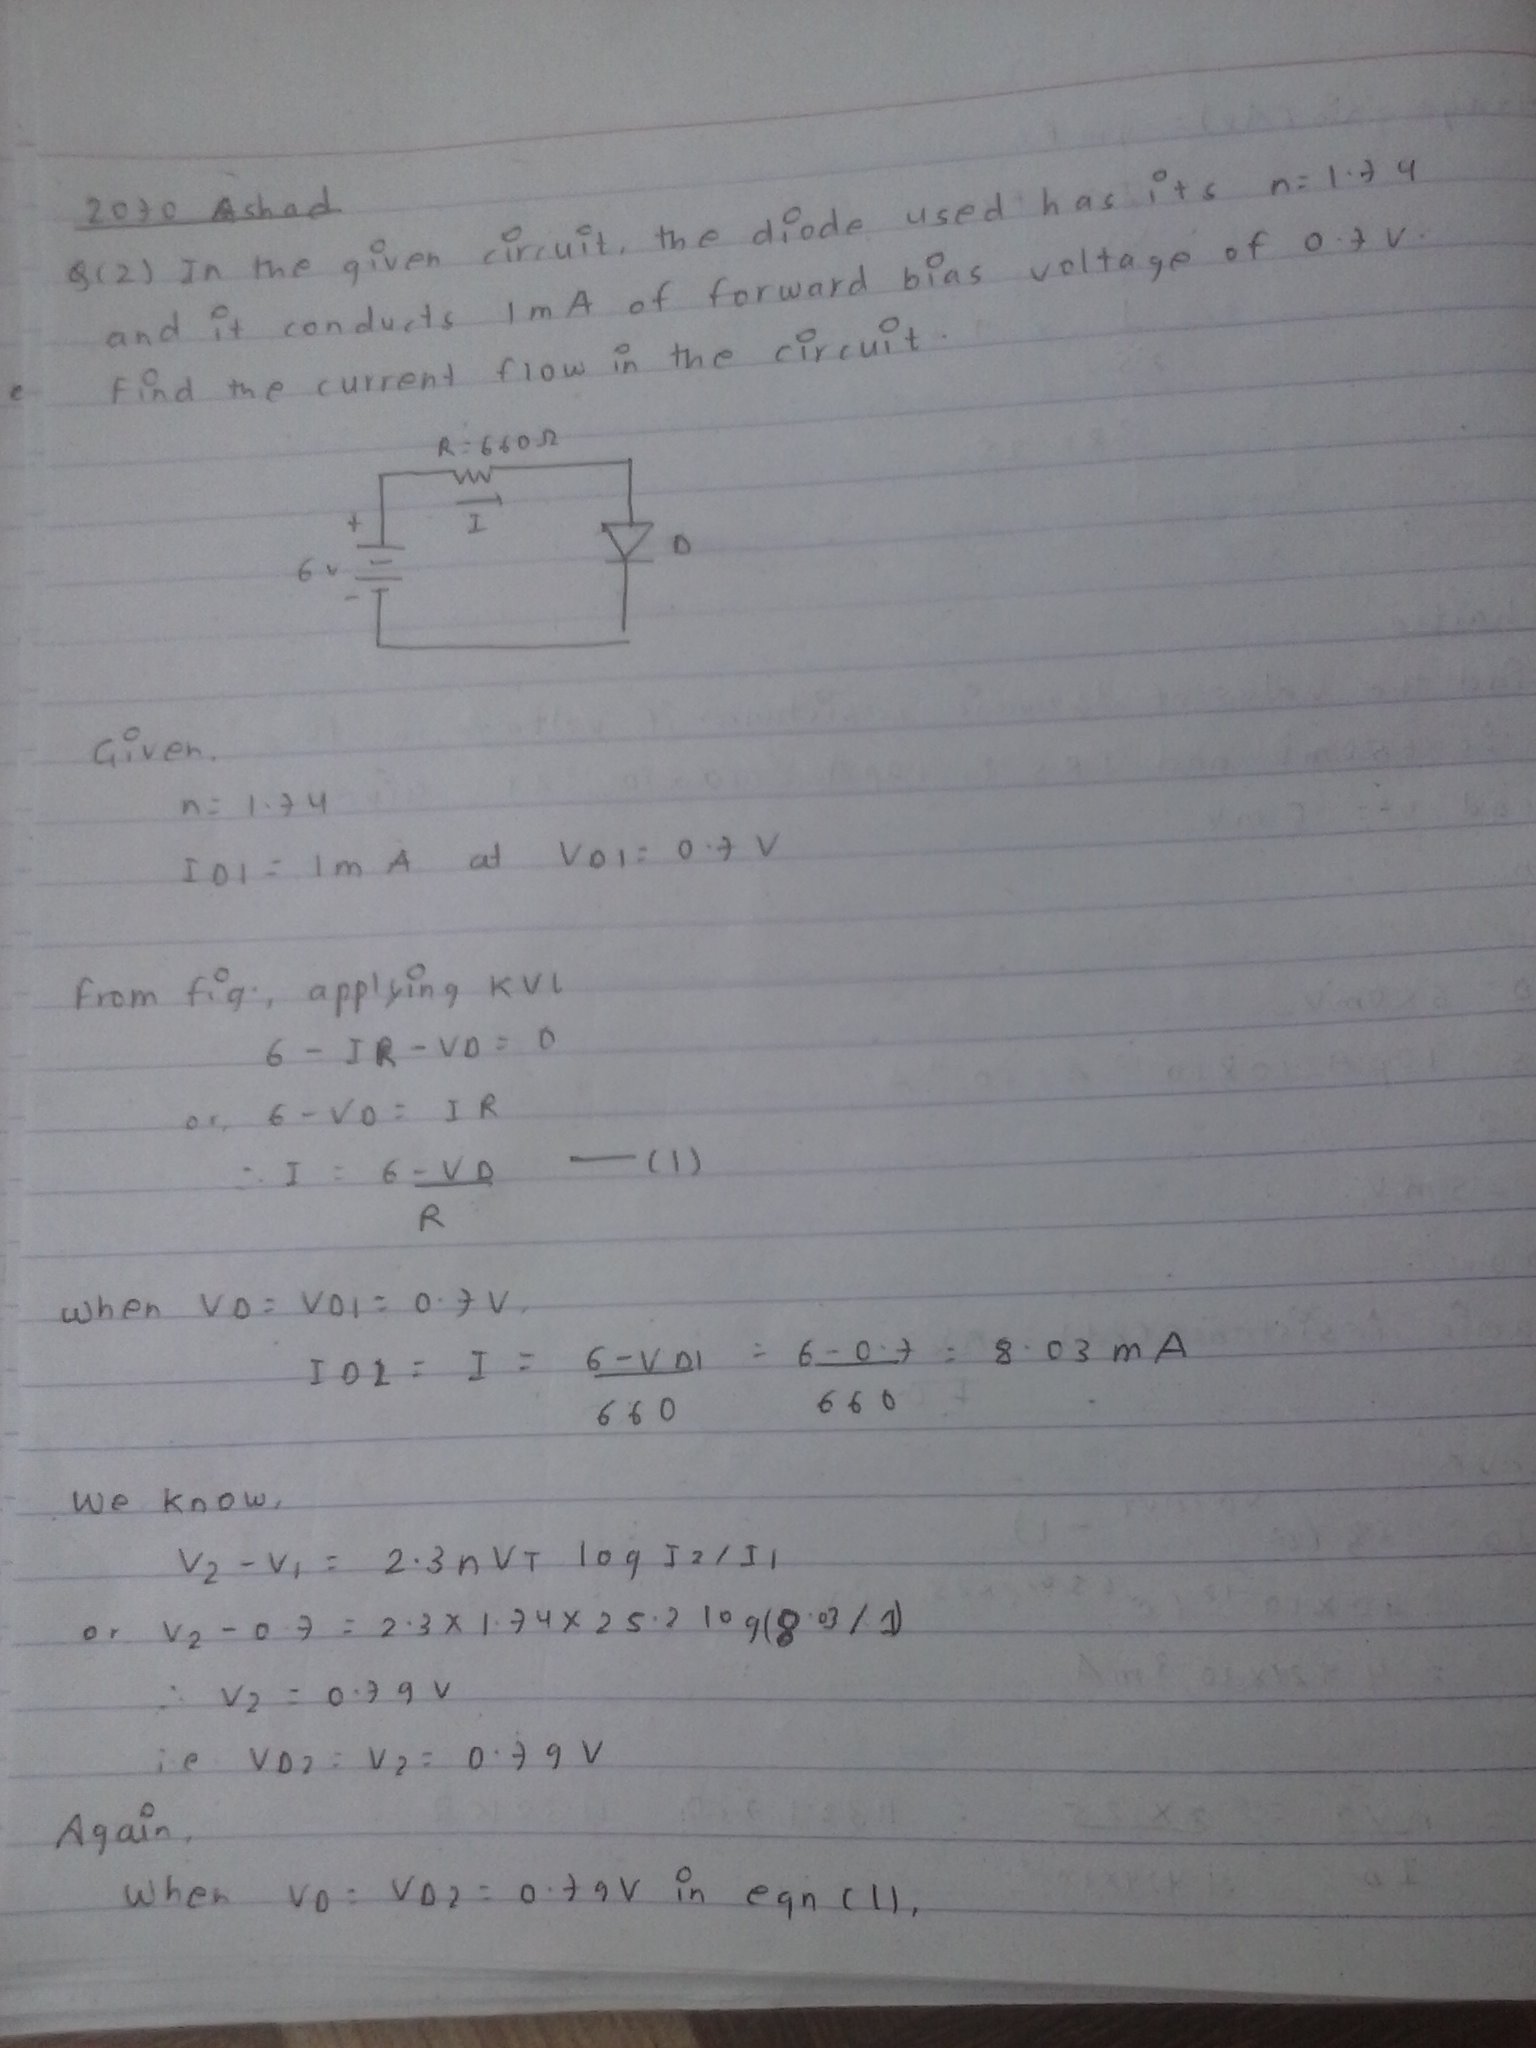 2070 Ashad
Q(2) In the given circuit, the diode used has its n=1.74
and it conducts 1mA of forward bias voltage of 0.7V.
Find the current flow in the circuit.
R=660Ω
+
I
6v
D
-
Given,
n=1.74
ID1=1mA at VD1=0.7V
From fig., applying KVL
6-IR-VD=0
or, 6-VD=IR
∴ I = 6-VD —(1)
R
when VD=VD1=0.7V,
ID2 = I = 6-VD1 = 6-0.7 = 8.03mA
660 660
We know,
V2-V1 = 2.3nVT log I2/I1
or V2-0.7 = 2.3×1.74×25.2 log(8.03/1)
∴ V2 = 0.79V
i.e VD2=V2=0.79V
Again,
When VD=VD2=0.79V in eqn (1),